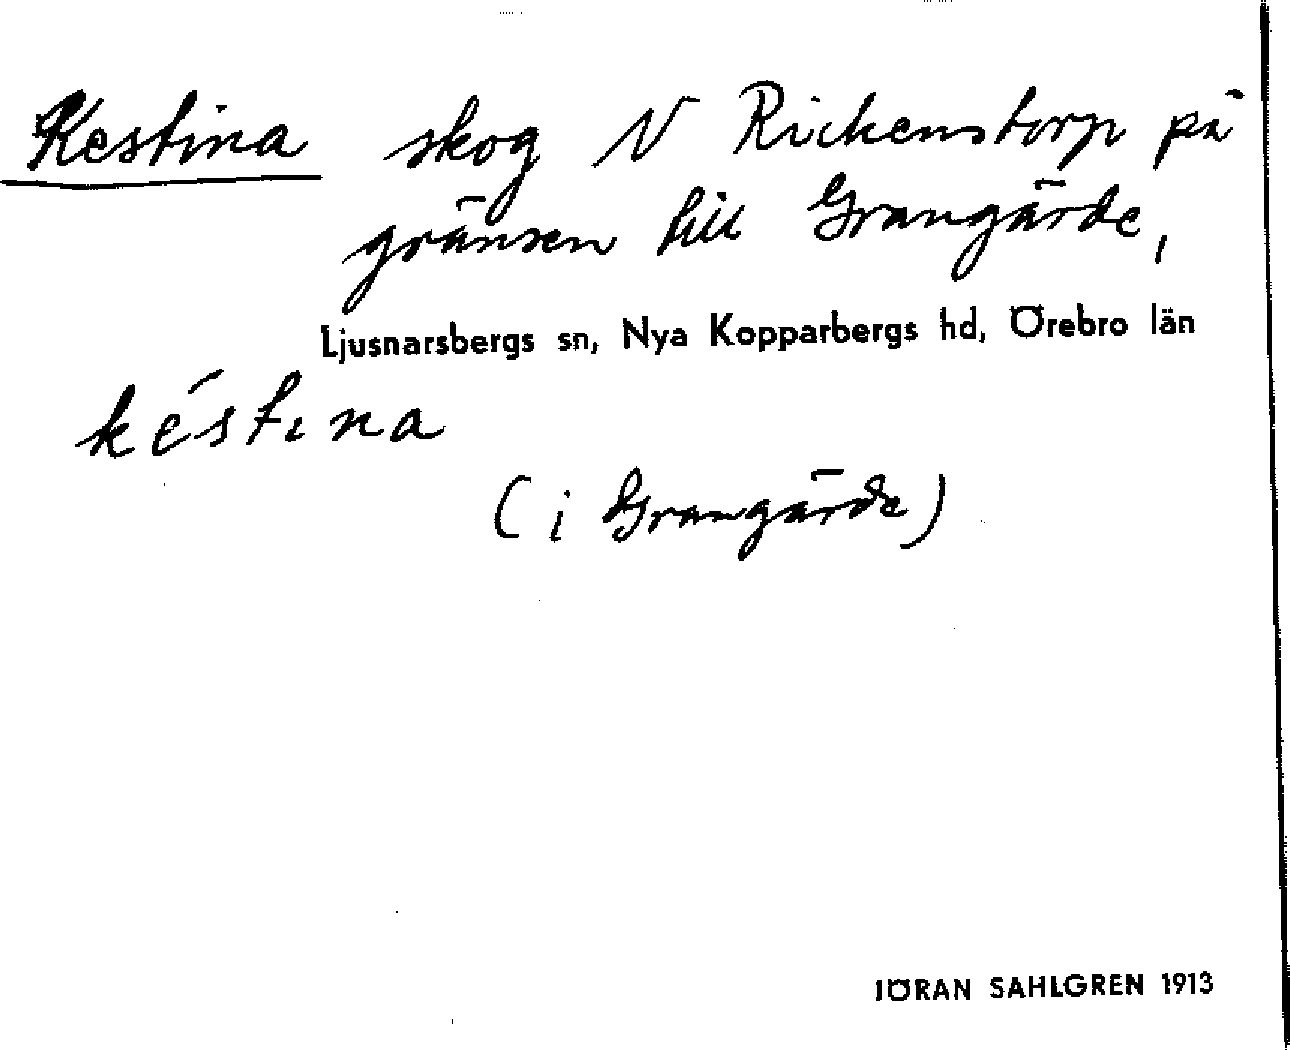 Kestina skog N Rickenstorp på
gränsen till Grangärde,
Ljusnarsbergs sn, Nya Kopparbergs hd, Örebro län
késtına
(i Grangärde)
JÖRAN SAHLGREN 1913